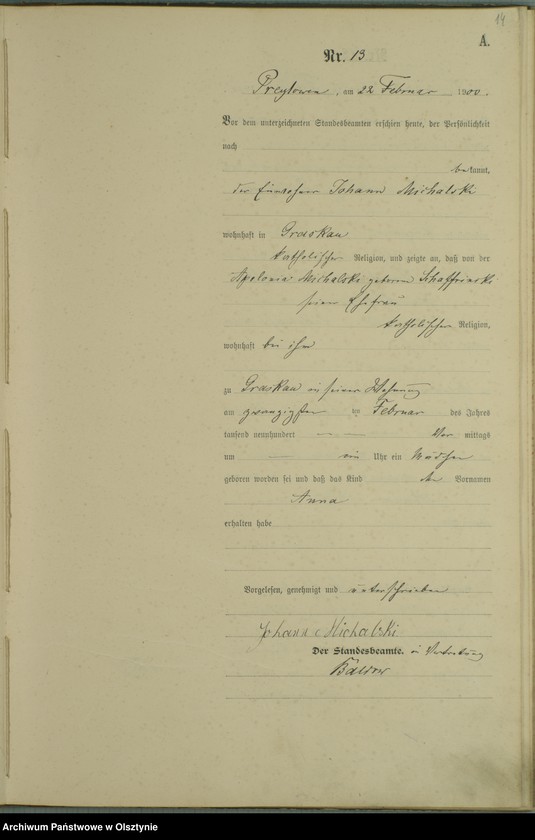 14
A.
Nr. 13
Preylowen, am 22 Februar 1900.
Vor dem unterzeichneten Standesbeamten erschien heute, der Persönlichkeit
nach
bekannt,
der Einwohner Johann Michalski
wohnhaft in Graskau
katholischer Religion, und zeigte an, daß von der
Apolonia Michalski geborenen Schaffrinski
seiner Ehefrau
katholischer Religion,
wohnhaft bei ihm
zu Graskau in seiner Wohnung
am zwanzigsten im Februar des Jahres
tausend neunhundert — — Vor mittags
um — ein Uhr ein Mädchen
geboren worden sei und daß das Kind den Vornamen
Anna
erhalten habe
Vorgelesen, genehmigt und unterschrieben
Johann Michalski
Der Standesbeamte. in Vertretung
Archiwum Państwowe w Olsztynie